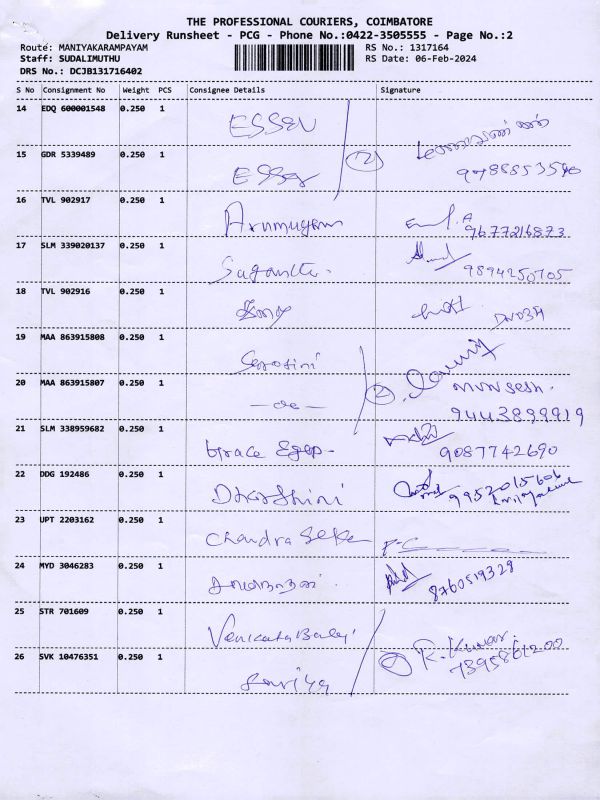 THE PROFESSIONAL COURIERS, COIMBATORE
Delivery Runsheet - PCG - Phone No.:0422-3505555 - Page No.:2
Route: MANIYAKARAMPAYAM RS No.: 1317164
Staff: SUDALIMUTHU RS Date: 06-Feb-2024
DRS No.: DCJB131716402
S No Consignment No Weight PCS Consignee Details Signature
14 EDQ 600001548 0.250 1 ESSEN
15 GDR 5339489 0.250 1 2 9788853590
16 TVL 902917 0.250 1 Arumugam 9677216873
17 SLM 339020137 0.250 1 9894250705
18 TVL 902916 0.250 1
19 MAA 863915808 0.250 1 Sarosini
20 MAA 863915807 0.250 1 - do - 2 9443899919
21 SLM 338959682 0.250 1 Grace 9087742690
22 DDG 192486 0.250 1 Dharshini 9952015606
23 UPT 2203162 0.250 1 Chandra Seka
24 MYD 3046283 0.250 1 8760519328
25 STR 701609 0.250 1 Venkata Balaji
26 SVK 10476351 0.250 1 2 R. Kumar